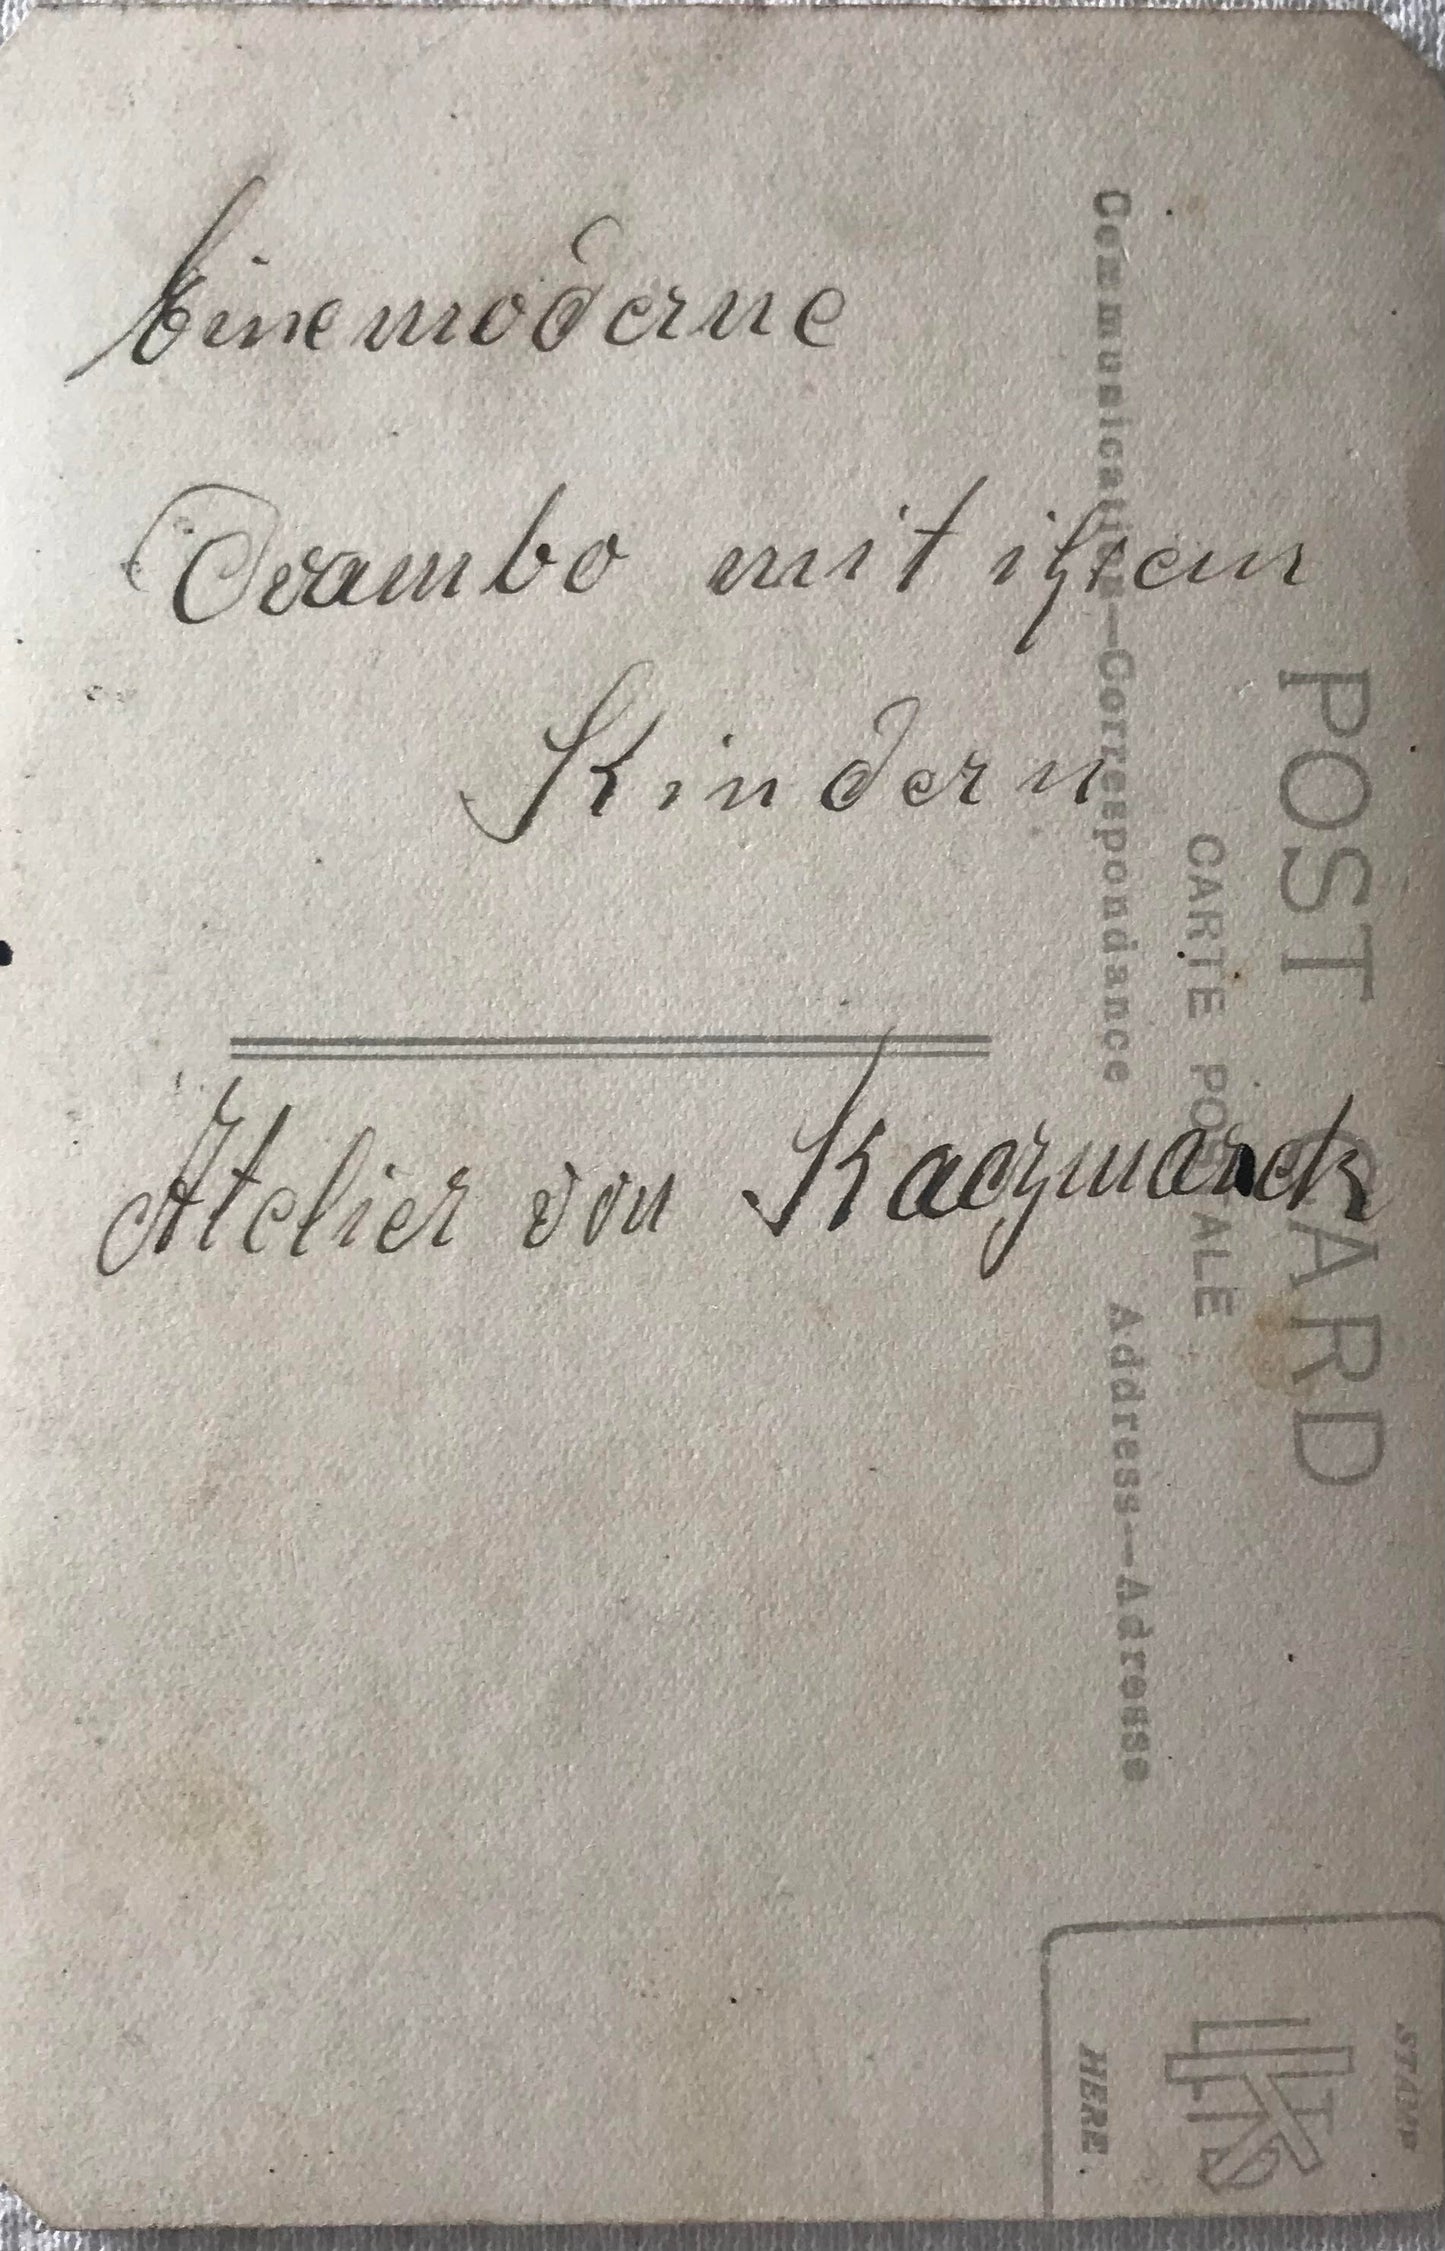 Eine moderne
Ovambo mit ihren
Kindern
Atelier von Kaczmarek
POST CARD
CARTE POSTALE
Communication—Correspondance
Address—Adresse
STAMP
HERE.